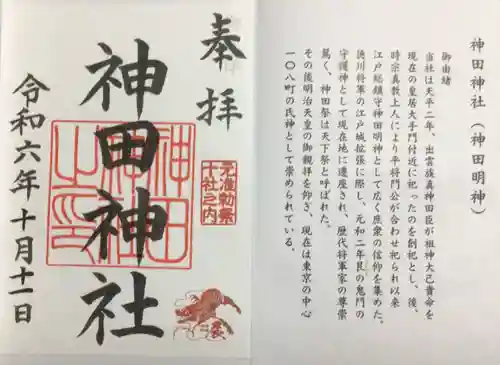 神田神社（神田明神）
御由緒
当社は天平二年、出雲族真神田臣が祖神大己貴命を
現在の皇居大手門付近に祀ったのを創祀とし、後、
時宗真教上人により平将門公が合わせ祀られ以来
江戸総鎮守神田明神として広く庶衆の信仰を集めた。
徳川将軍の江戸城拡張に際し、元和二年艮の鬼門の
守護神として現在地に遷座され、歴代将軍家の尊崇
篤く、神田祭は天下祭と呼ばれた。
その後明治天皇の御親拝を仰ぎ、現在は東京の中心
一〇八町の氏神として崇められている。
奉拝
元准勅祭
十社之内
神田神社
令和六年十月十一日